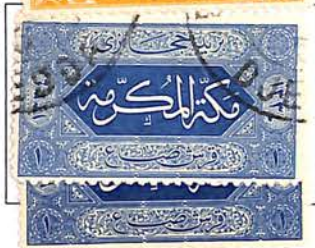 بريد حجازي
مكة المكرمة
١ قرش صاغ ١
١ قرش صاغ ١